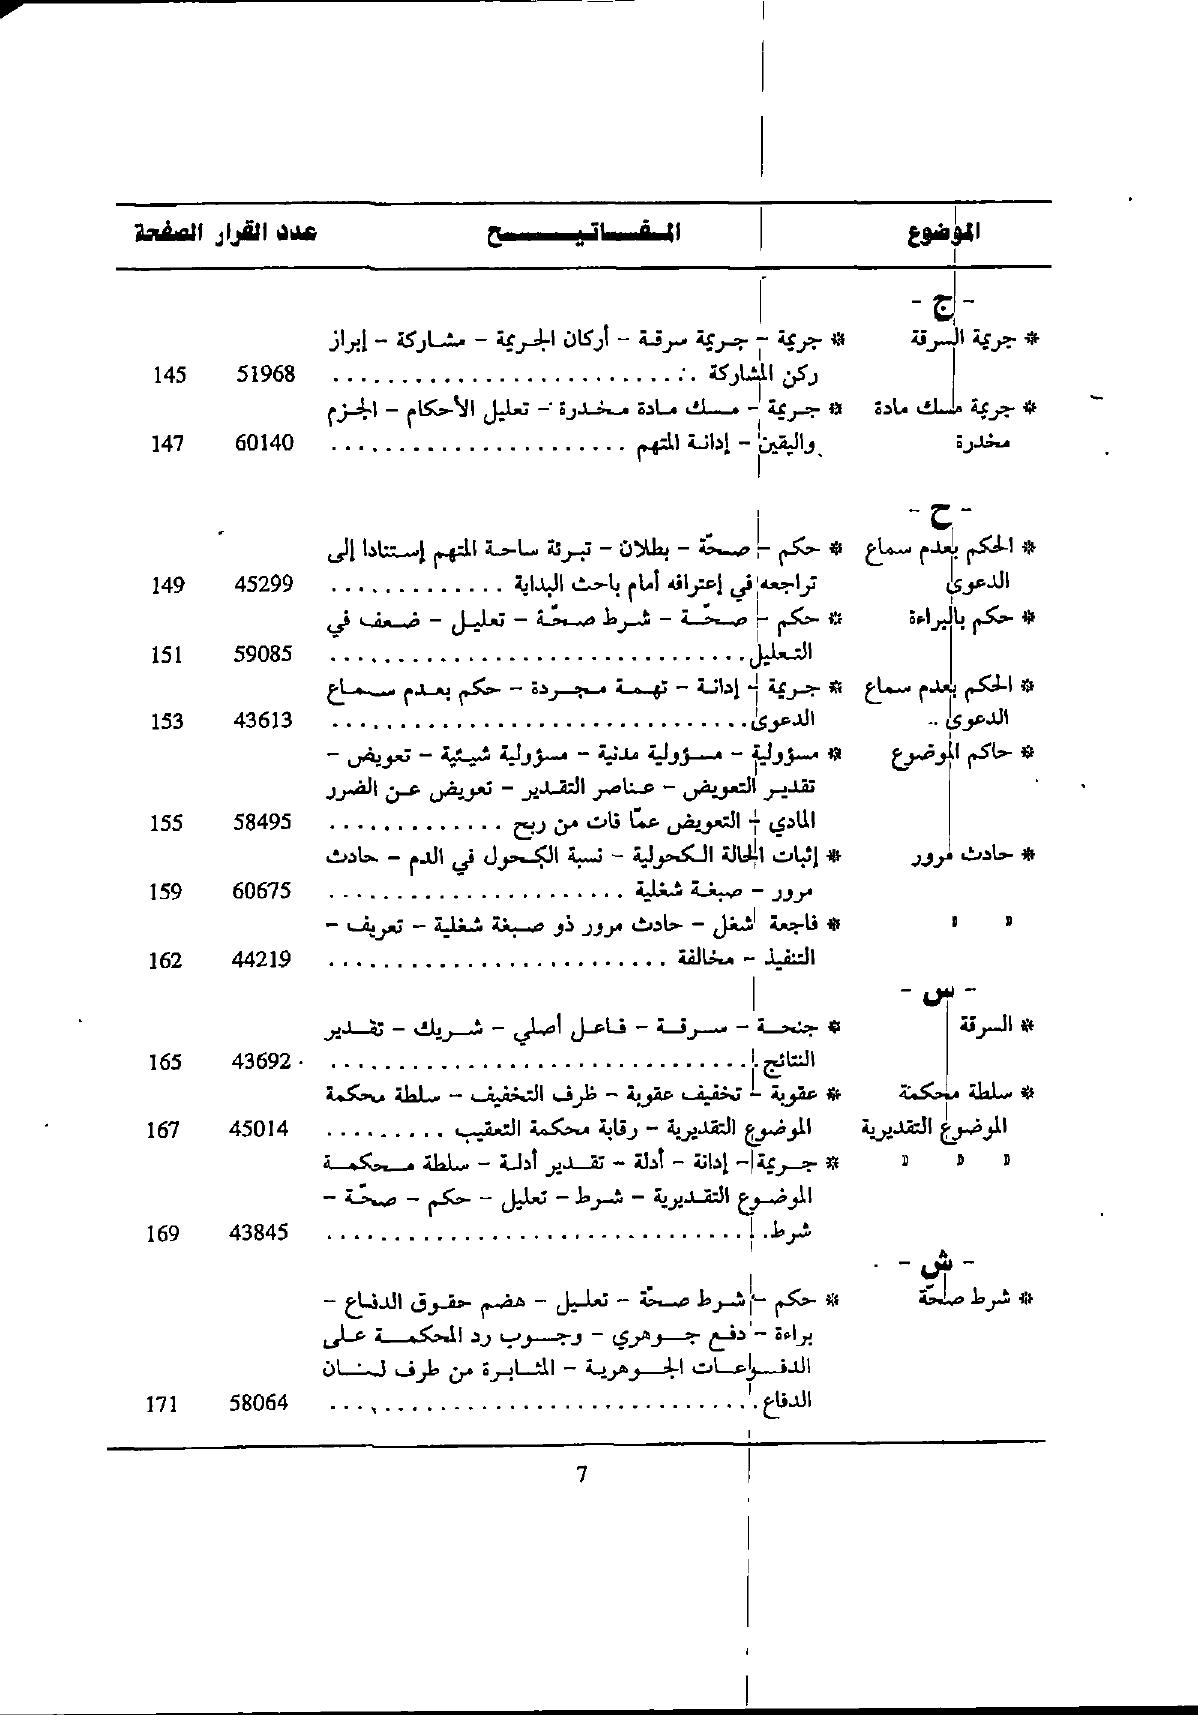 الموضوع المفـــاتيـــــح عدد القرار الصفحة
- ج -
* جريمة السرقة * جريمة - جريمة سرقة - أركان الجريمة - مشاركة - إبراز
ركن المشاركة . . . . . . . . . . . . . . . . . . . . . . . . . . . 51968 145
* جريمة مسك مادة * جريمة - مسك مادة مخدرة - تعليل الأحكام - الجزم
مخدرة واليقين - إدانة المتهم . . . . . . . . . . . . . . . . . . . . . . 60140 147
- ح -
* الحكم بعدم سماع * حكم - صحّة - بطلان - تبرئة ساحة المتهم إستنادا إلى
الدعوى تراجعه في إعترافه أمام باحث البداية . . . . . . . . . . . . . 45299 149
* حكم بالبراءة * حكم - صحّة - شرط صحّة - تعليل - ضعف في
التعليل . . . . . . . . . . . . . . . . . . . . . . . . . . . . . . . 59085 151
* الحكم بعدم سماع * جريمة - إدانة - تهمة مجردة - حكم بعدم سماع
الدعوى .. الدعوى . . . . . . . . . . . . . . . . . . . . . . . . . . . . . . . 43613 153
* حاكم الموضوع * مسؤولية - مسؤولية مدنية - مسؤولية شيئية - تعويض -
تقدير التعويض - عناصر التقدير - تعويض عن الضرر
المادي - التعويض عمّا فات من ربح . . . . . . . . . . . . . 58495 155
* حادث مرور * إثبات الحالة الكحولية - نسبة الكحول في الدم - حادث
مرور - صبغة شغلية . . . . . . . . . . . . . . . . . . . . . . 60675 159
" " * فاجعة شغل - حادث مرور ذو صبغة شغلية - تعريف -
التنفيذ - مخالفة . . . . . . . . . . . . . . . . . . . . . . . . . 44219 162
- س -
* السرقة * جنحة - سرقة - فاعل أصلي - شريك - تقدير
النتائج . . . . . . . . . . . . . . . . . . . . . . . . . . . . . . . 43692 165
* سلطة محكمة * عقوبة - تخفيف عقوبة - ظرف التخفيف - سلطة محكمة
الموضوع التقديرية الموضوع التقديرية - رقابة محكمة التعقيب . . . . . . . . . 45014 167
" " " * جريمة - إدانة - أدلة - تقدير أدلة - سلطة محكمة
الموضوع التقديرية - شرط - تعليل - حكم - صحّة -
شرط . . . . . . . . . . . . . . . . . . . . . . . . . . . . . . . . 43845 169
- ش -
* شرط صحّة * حكم - شرط صحّة - تعليل - هضم حقوق الدفاع -
براءة - دفع جوهري - وجوب رد المحكمة على
الدفواعات الجوهرية - المثابرة من طرف لسان
الدفاع . . . . . . . . . . . . . . . . . . . . . . . . . . . . . . . 58064 171
7